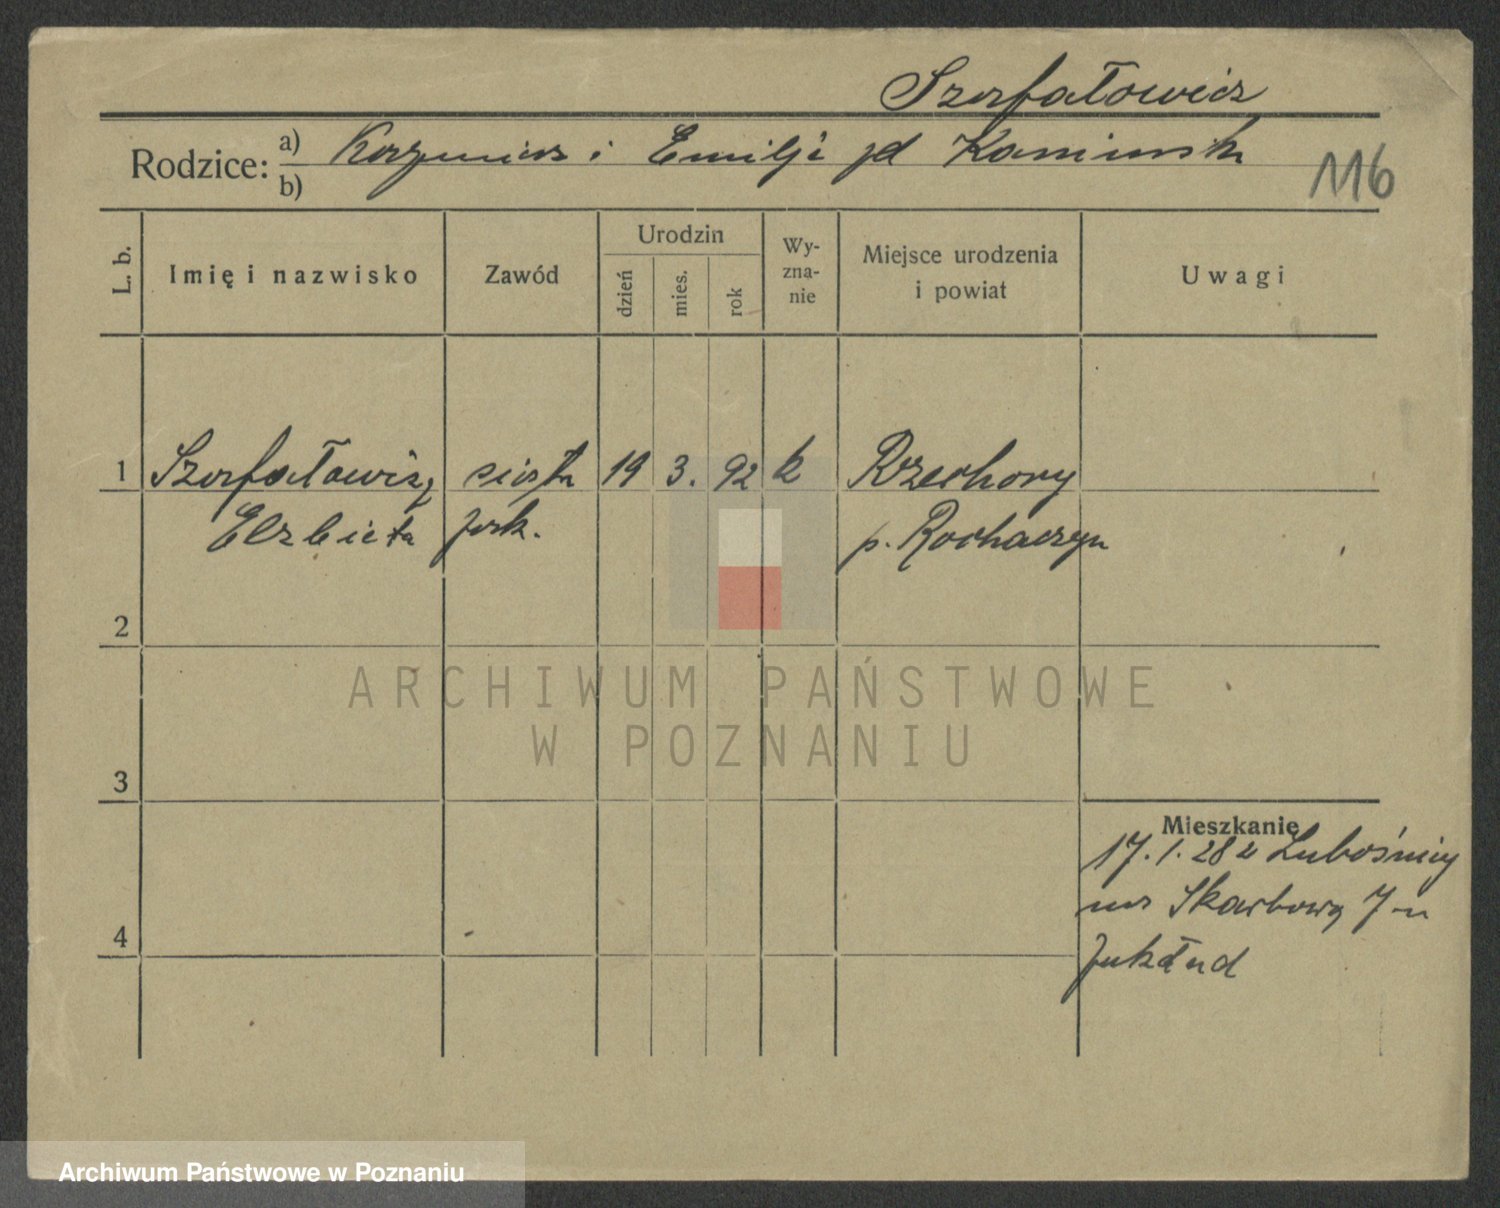 Szerfałowicz
Rodzice: a) Kazimierz i Emilji zd Kamińsk
b)
116
L. b.
Imię i nazwisko
Zawód
Urodzin
dzień
mies.
rok
Wy-
zna-
nie
Miejsce urodzenia
i powiat
Uwagi
1 Szerfałowicz siostra 19 3. 92 k Rzechowy
Elzbieta p.
2
3
4
Mieszkanie
17.1.28 z Lubośnicy
Skarbową 7
zakład
ARCHIWUM PAŃSTWOWE
W POZNANIU
Archiwum Państwowe w Poznaniu